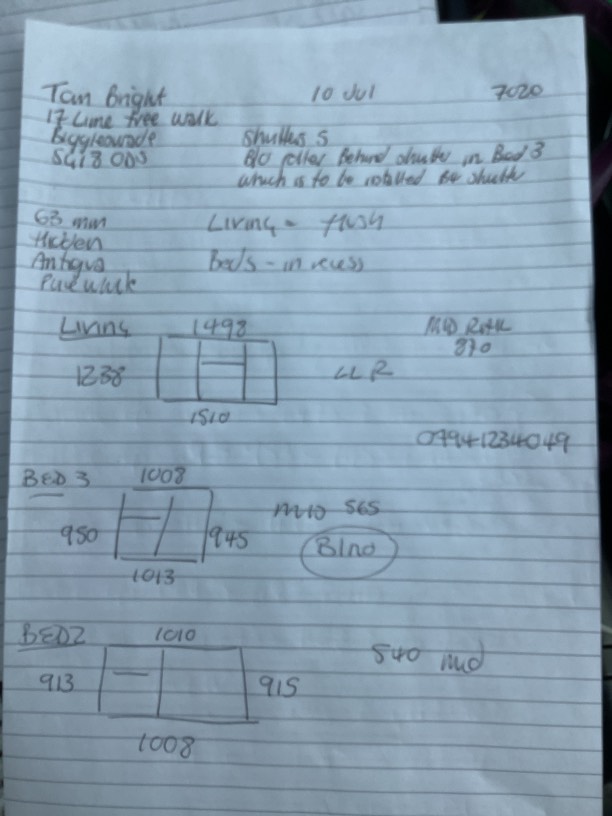 Tan Bright 10 Jul 7020
17 Lime Tree Walk
Biggleswade Shutters
SG18 0DS B/O roller Behind shutter in Bed 3
which is to be installed shutter
63 mm Living - flush
Hidden
Antigua Beds - in recess
Pure
Living 1498 MID RAIL
870
1238 LLR
1510
07941234049
BED 3 1008
MID 565
950 945 Blind
1013
BED 2 1010
540 mid
913 915
1008